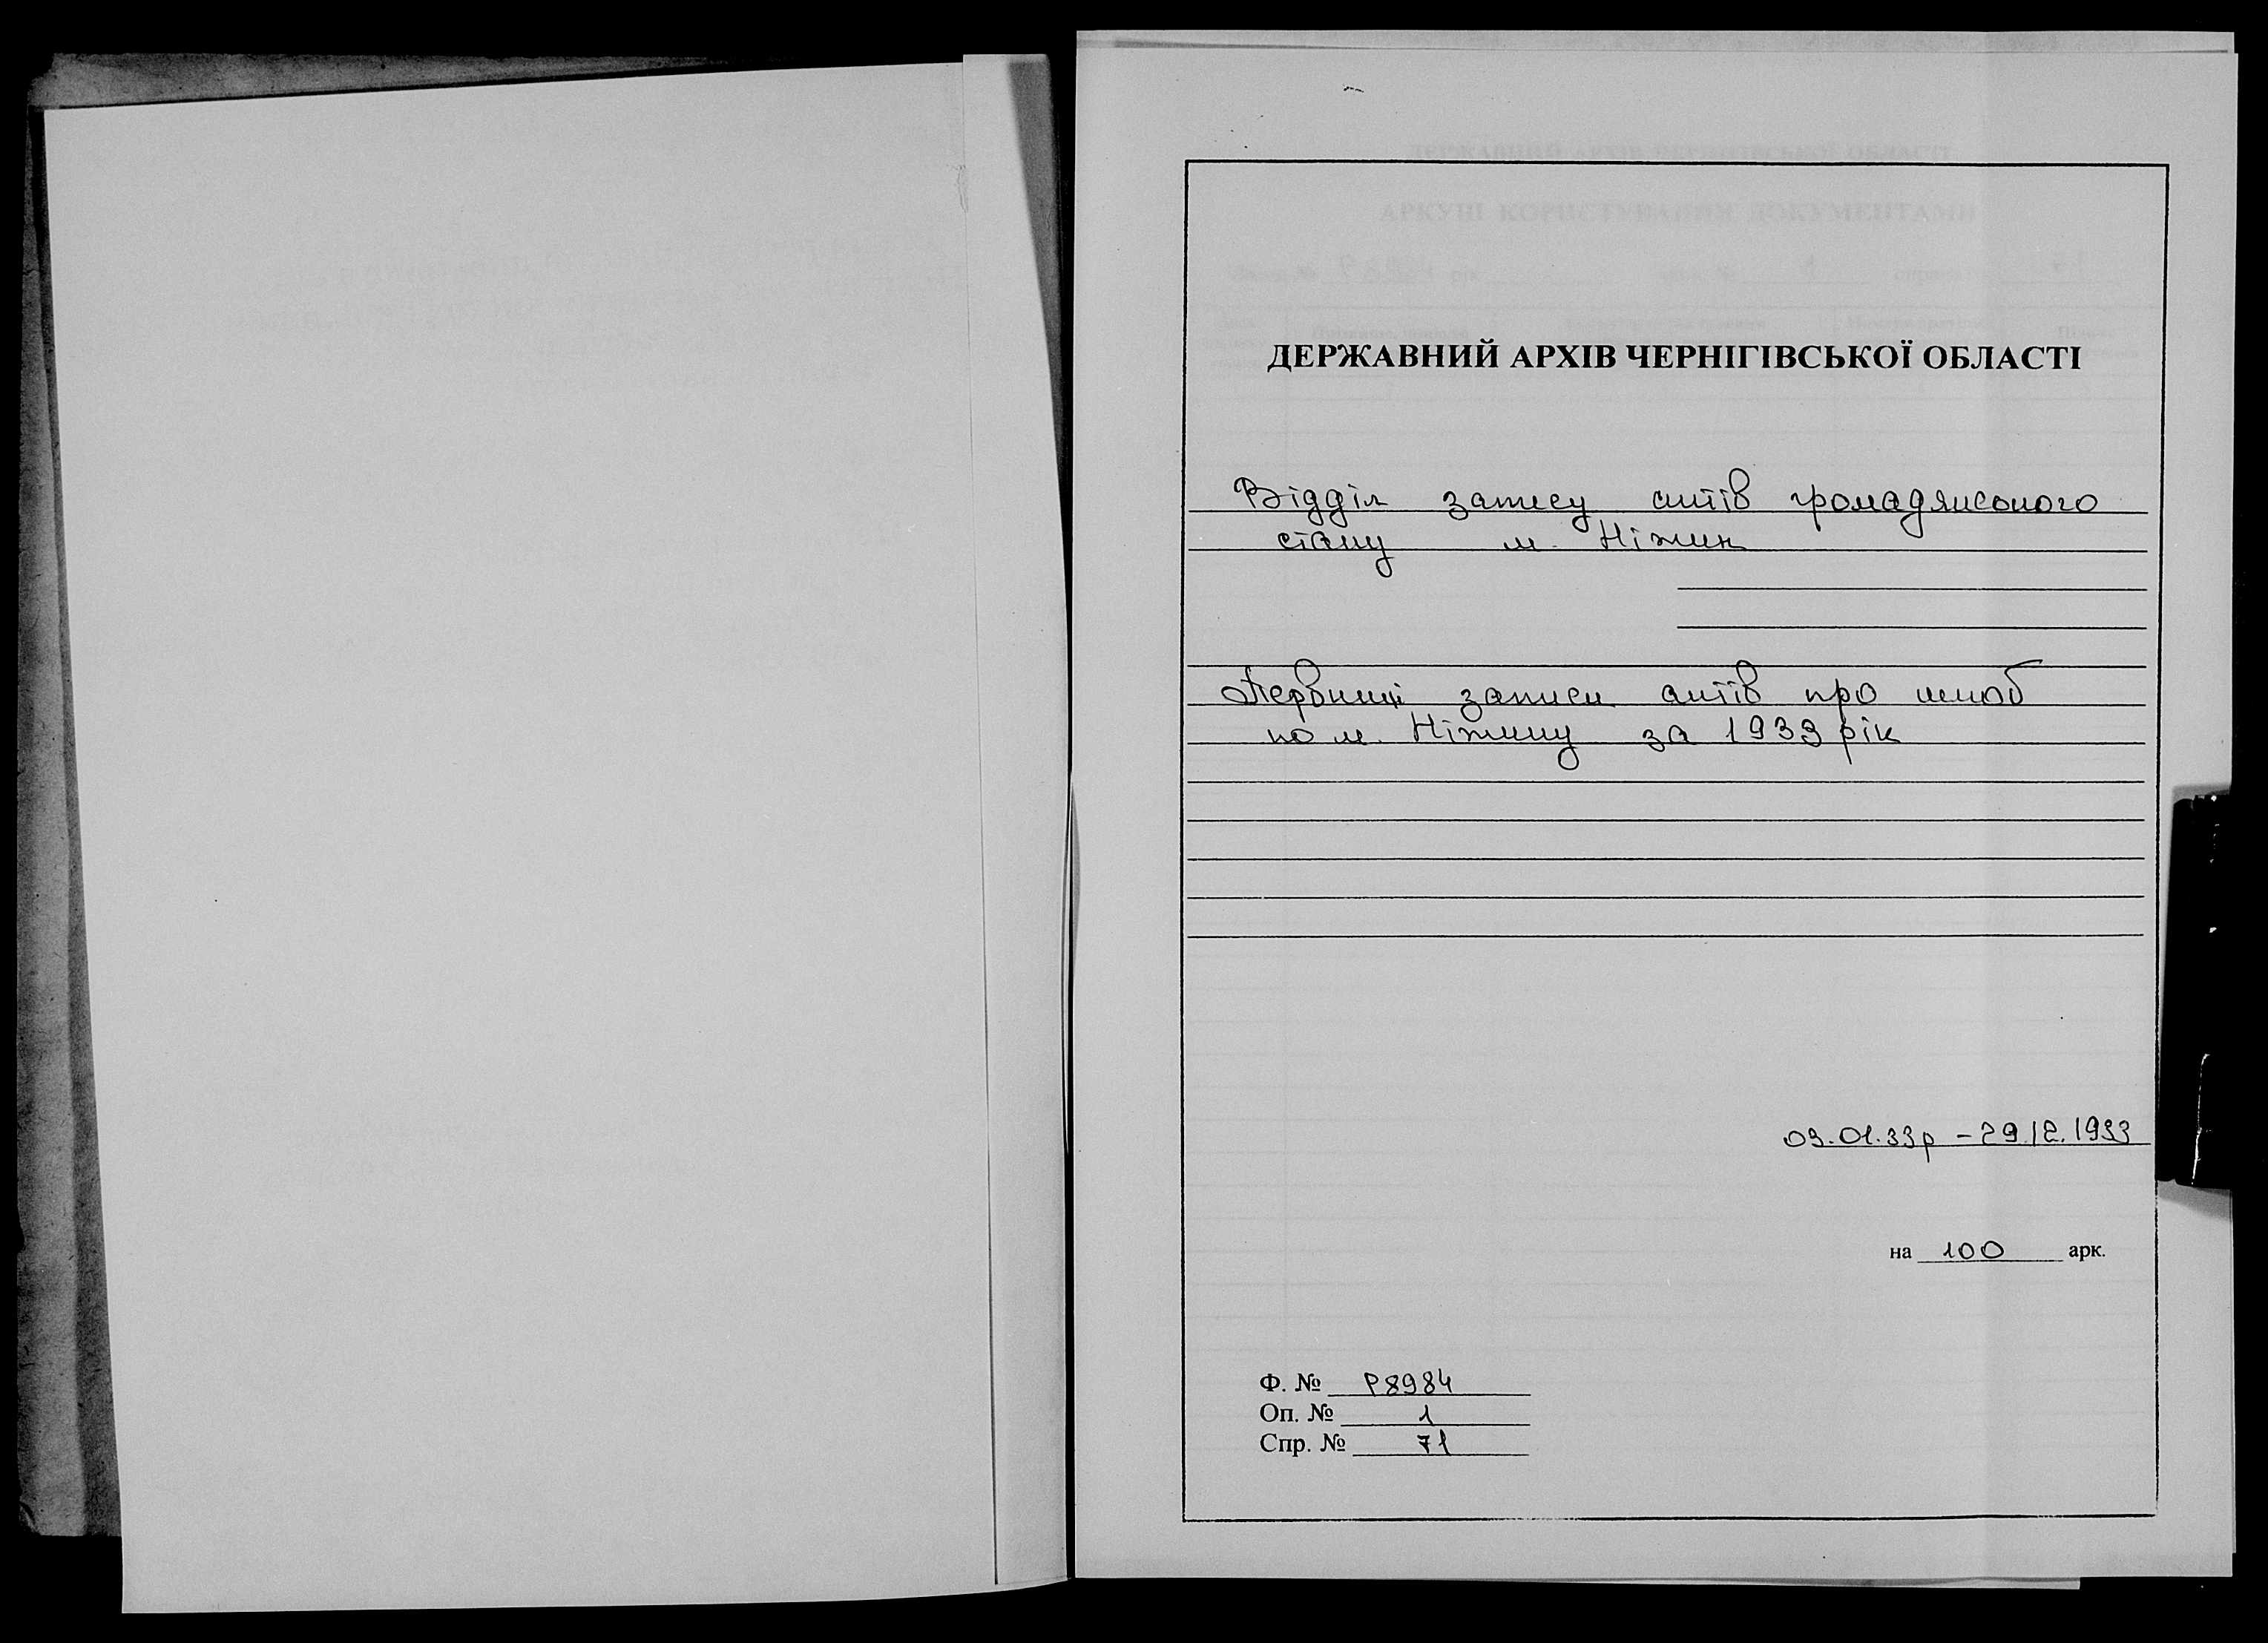 ДЕРЖАВНИЙ АРХІВ ЧЕРНІГІВСЬКОЇ ОБЛАСТІ
АРКУШ КОРИСТУВАННЯ ДОКУМЕНТАМИ
ДЕРЖАВНИЙ АРХІВ ЧЕРНІГІВСЬКОЇ ОБЛАСТІ
Відділ запису актів громадянського
стану м. Ніжин
Первинні записи актів про шлюб
по м. Ніжину за 1933 рік
03.01.33р – 29.12.1933
на 100 арк.
Ф. № Р8984
Оп. № 1
Спр. № 71